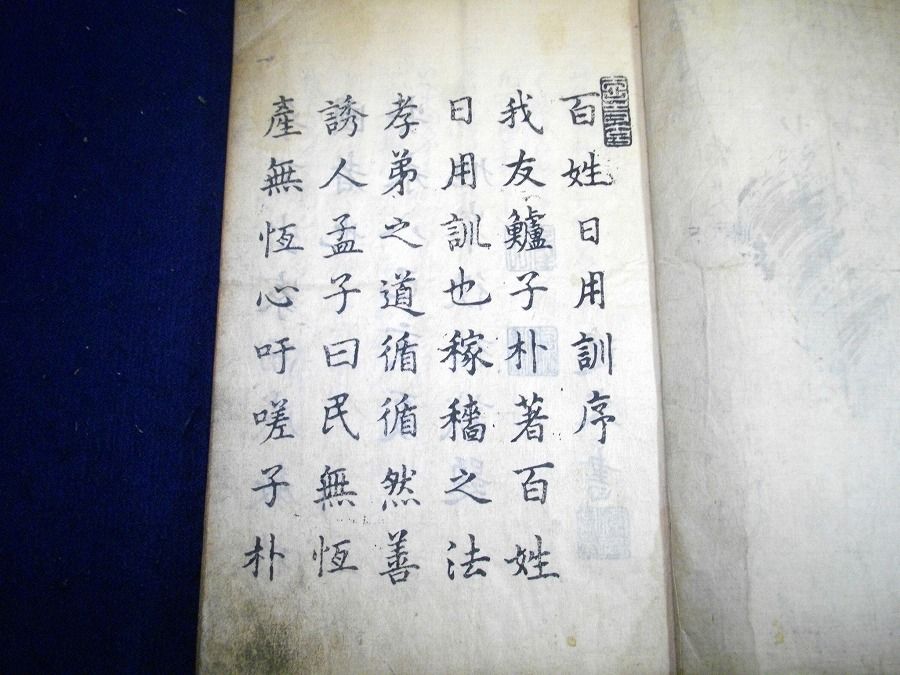 百姓日用訓序
我友鱸子朴著百姓
日用訓也稼穡之法
孝弟之道循循然善
誘人孟子曰民無恆
產無恆心吁嗟子朴